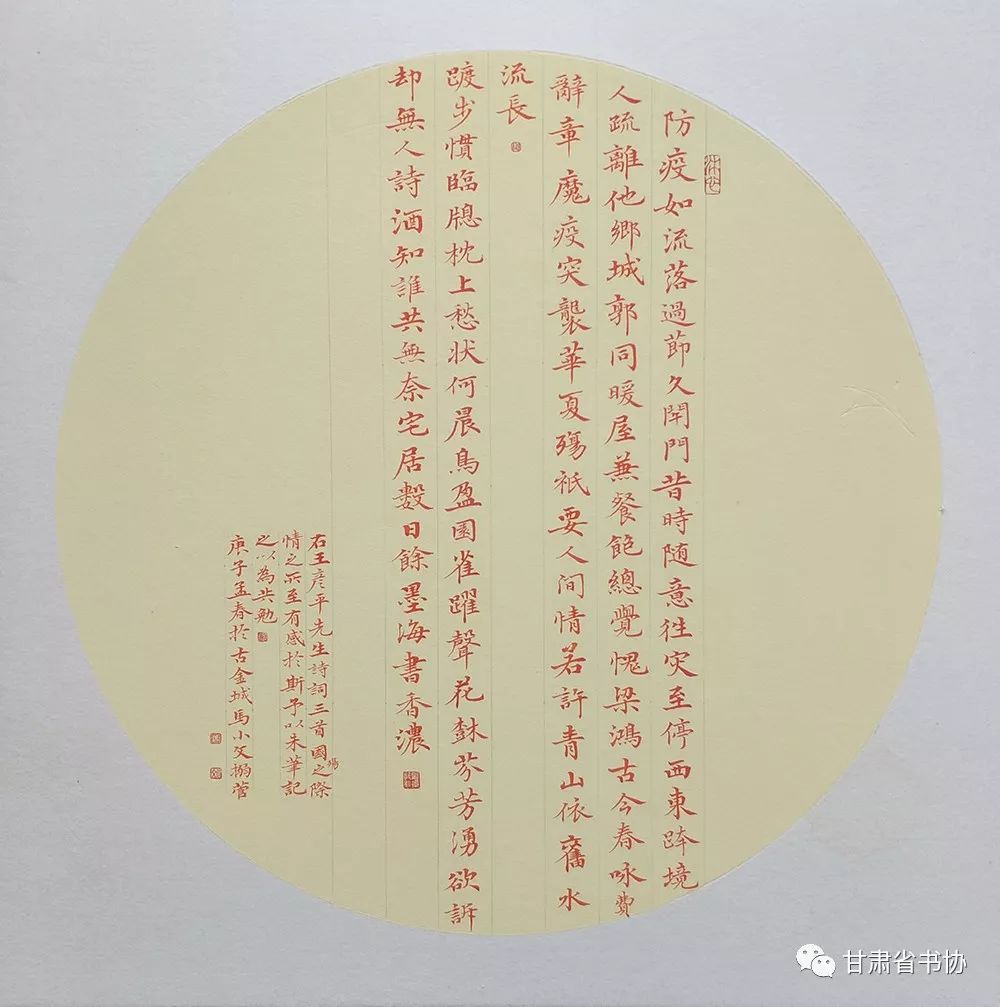 防疫如流落過節久閉門昔時随意徃灾至停西東跨境
人疏離他鄉城郭同暖屋無餐飽總覺愧梁鴻古今春咏費
辭章魔疫突襲華夏殤衹要人间情若許青山依舊水
流長
踱步慣臨牕枕上愁状何晨鳥盈園雀躍聲花蘇芬芳湧欲訴
却無人詩酒知誰共無奈宅居數日餘墨海書香濃
右王彦平先生詩詞三首國之際
殤
情之所至有感於斯予以朱筆記
之以為共勉
庚子孟春於古金城馬小艾搦管
甘肃省书协